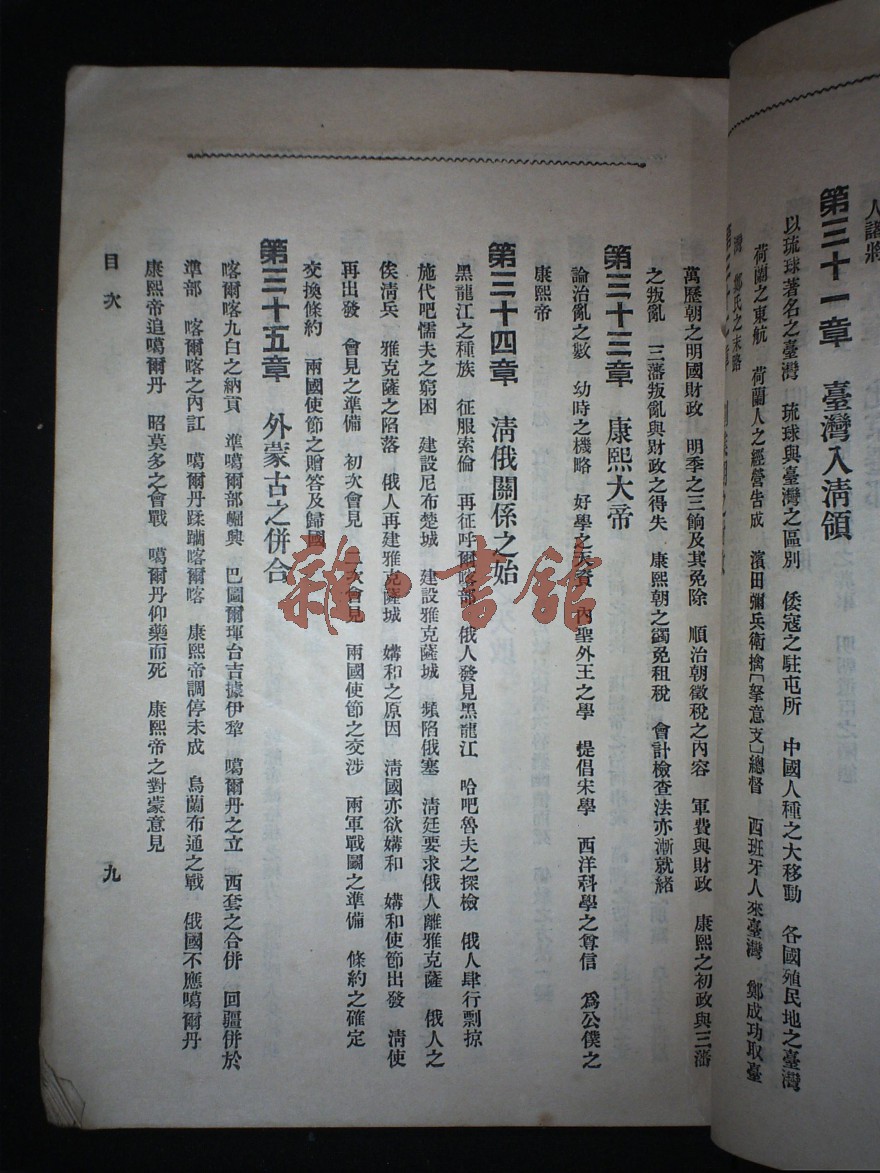 人諸將
第三十一章　臺灣入淸領
以琉球著名之臺灣　琉球與臺灣之區別　倭寇之駐屯所　中國人種之大移動　各國殖民地之臺灣
荷蘭之東航　荷蘭人之經營告成　濱田彌兵衛擒[拏意支]總督　西班牙人來臺灣　鄭成功取臺
灣　鄭氏之末路
萬歷朝之明國財政　明季之三餉及其免除　順治朝徵稅之內容　軍費與財政　康熙之初政與三藩
之叛亂　三藩叛亂與財政之得失　康熙朝之蠲免租稅　會計檢查法亦漸就緒
第三十三章　康熙大帝
論治亂之數　幼時之機略　好學之天資　內聖外王之學　提倡宋學　西洋科學之尊信　爲公僕之
康熙帝
第三十四章　淸俄關係之始
黑龍江之種族　征服索倫　再征呼爾喀部　俄人發見黑龍江　哈吧魯夫之探檢　俄人肆行剽掠
施代吧懦夫之窮困　建設尼布楚城　建設雅克薩城　頻陷俄塞　淸廷要求俄人離雅克薩　俄人之
俟淸兵　雅克薩之陷落　俄人再建雅克薩城　媾和之原因　淸國亦欲媾和　媾和使節出發　淸使
再出發　會見之準備　初次會見　二次會見　兩國使節之交涉　兩軍戰鬬之準備　條約之確定
交換條約　兩國使節之贈答及歸國
第三十五章　外蒙古之併合
喀爾喀九白之納貢　準噶爾部崛興　巴圖爾琿台吉據伊犂　噶爾丹之立　西套之合併　回疆併於
準部　喀爾喀之內訌　噶爾丹蹂躪喀爾喀　康熙帝調停未成　烏蘭布通之戰　俄國不應噶爾丹
康熙帝追噶爾丹　昭莫多之會戰　噶爾丹仰藥而死　康熙帝之對蒙意見
目次
九
雜·書館